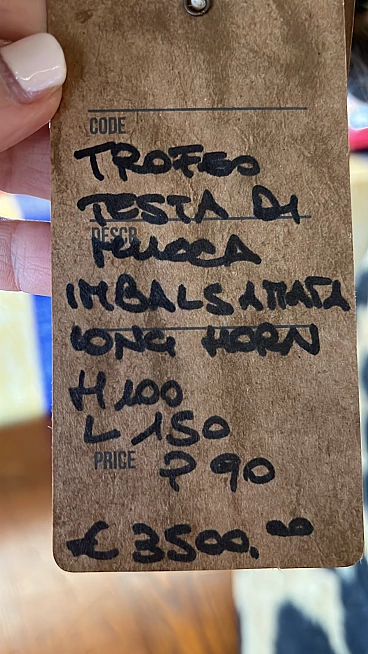 CODE
TROFEO
TESTA DI
DESCR
MUCCA
IMBALSAMATA
LONG HORN
H 100
L 150
PRICE P 90
€ 3500,00